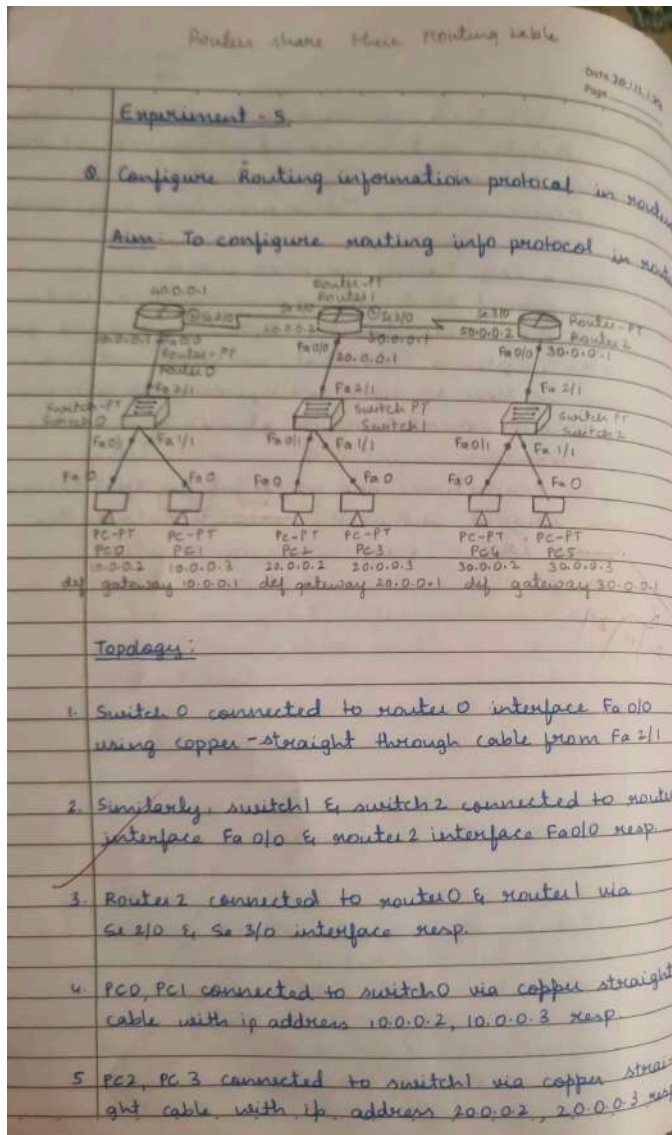 Routers share their routing table
Date 30/11/
Page
Experiment - 5
Q Configure Routing information protocal in router
Aim: To configure routing info protocol in rout
40.0.0.1
Router-PT
Router 1
Se 2/0
40.0.0.2
Se 3/0
50.0.0.1
Se 3/0
50.0.0.2
Router-PT
Router 2
10.0.0.1
Fa 0/0
Router-PT
Router 0
Fa 0/0
20.0.0.1
Fa 0/0
30.0.0.1
Fa 2/1
Fa 2/1
Fa 2/1
Switch-PT
Switch 0
Switch PT
Switch 1
Switch PT
Switch 2
Fa 0/1 Fa 1/1 Fa 0/1 Fa 1/1 Fa 0/1 Fa 1/1
Fa 0 Fa 0 Fa 0 Fa 0 Fa 0 Fa 0
PC-PT PC-PT PC-PT PC-PT PC-PT PC-PT
PC0 PC1 PC2 PC3 PC4 PC5
10.0.0.2 10.0.0.3 20.0.0.2 20.0.0.3 30.0.0.2 30.0.0.3
def gateway 10.0.0.1 def gateway 20.0.0.1 def gateway 30.0.0.1
Topology:
1. Switch 0 connected to router 0 interface Fa 0/0
using copper-straight through cable from Fa 2/1
2. Similarly, switch1 & switch 2 connected to route
interface Fa 0/0 & router 2 interface Fa0/0 resp.
3. Router 2 connected to router0 & router1 via
Se 2/0 & Se 3/0 interface resp.
4. PC0, PC1 connected to switch0 via copper straight
cable with ip address 10.0.0.2, 10.0.0.3 resp.
5 PC2, PC 3 connected to switch1 via copper strai-
ght cable with ip address 20.0.0.2, 20.0.0.3 resp